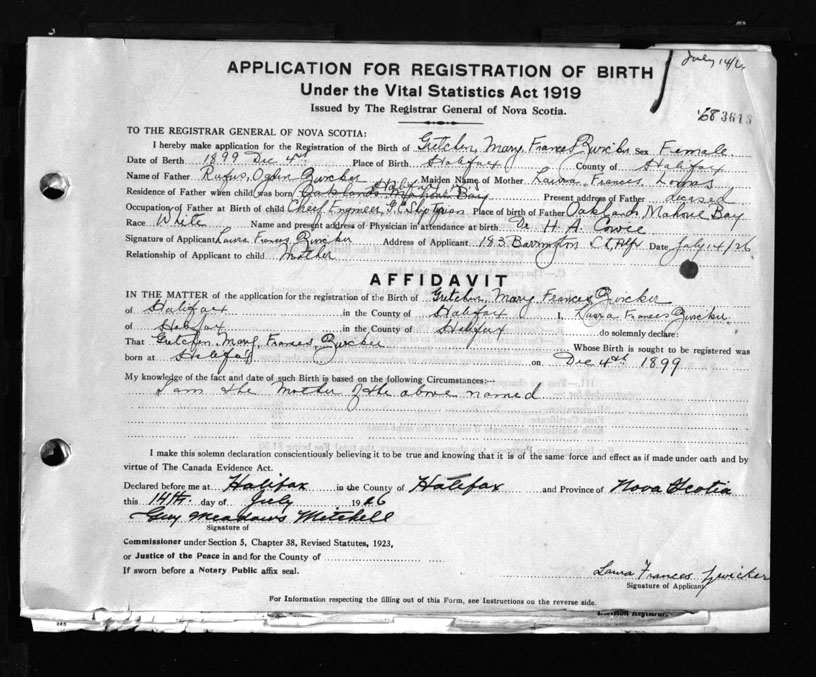 July 14/26
APPLICATION FOR REGISTRATION OF BIRTH
Under the Vital Statistics Act 1919
Issued by The Registrar General of Nova Scotia.
TO THE REGISTRAR GENERAL OF NOVA SCOTIA:
I hereby make application for the Registration of the Birth of Gretchen, Mary, Frances Zwicker Sex Female
Date of Birth 1899 Dec 4th Place of Birth Halifax County of Halifax
Name of Father Rufus, Ogden Zwicker Maiden Name of Mother Laura, Frances
Residence of Father when child was born Oaklands Mahone Bay Halifax Present address of Father
Occupation of Father at Birth of child Chief Engineer Place of birth of Father Oaklands, Mahone Bay
Race White Name and present address of Physician in attendance at birth Dr H. A.
Signature of Applicant Laura Frances, Zwicker Address of Applicant 183 Barrington St, Hfx Date July 14/26
Relationship of Applicant to child Mother
AFFIDAVIT
IN THE MATTER of the application for the registration of the Birth of Gretchen, Mary Frances Zwicker
of Halifax in the County of Halifax I, Laura Frances Zwicker
of Halifax in the County of Halifax do solemnly declare:
That Gretchen, Mary, Frances, Zwicker Whose Birth is sought to be registered was
born at Halifax on Dec 4th 1899
My knowledge of the fact and date of such Birth is based on the following Circumstances:—
I am the Mother of the above named
I make this solemn declaration conscientiously believing it to be true and knowing that it is of the same force and effect as if made under oath and by
virtue of The Canada Evidence Act.
Declared before me at Halifax in the County of Halifax and Province of Nova Scotia
this 14th day of July 1926
Guy Meadows Mitchell
Signature of
Commissioner under Section 5, Chapter 38, Revised Statutes, 1923,
or Justice of the Peace in and for the County of
If sworn before a Notary Public affix seal.
Laura Frances Zwicker
Signature of Applicant
For Information respecting the filling out of this Form, see Instructions on the reverse side.